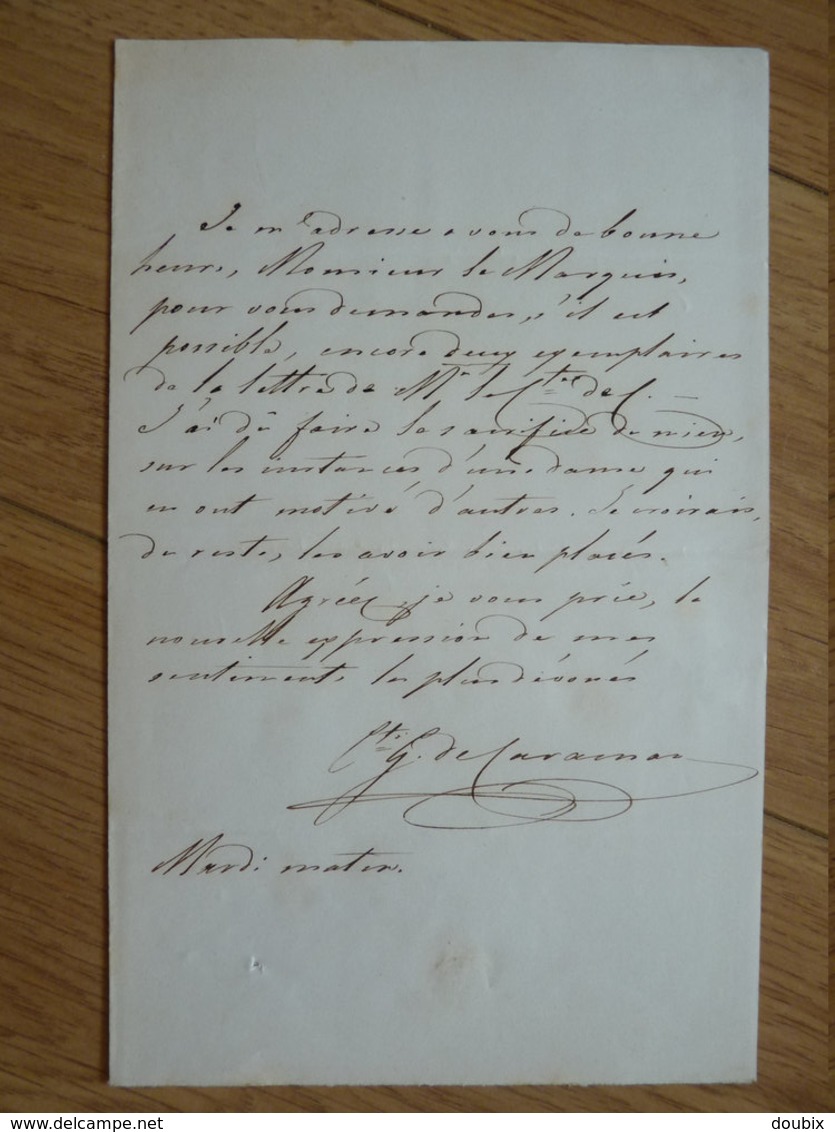 Je m'adresse a vous de bonne
heure, Monsieur le Marquis,
pour vous demander, s'il est
possible, encore deux exemplaires
de la lettre de Mr le Cte de C. —
J'ai dû faire le sacrifice du mien,
sur les instances d'une dame qui
en ont motivé d'autres. Je croirais,
du reste, les avoir bien placés.
Agréez, je vous prie, la
nouvelle expression de mes
sentiments les plus dévoués
Cte G. de Caraman
Mardi matin.
delcampe.net
doubix